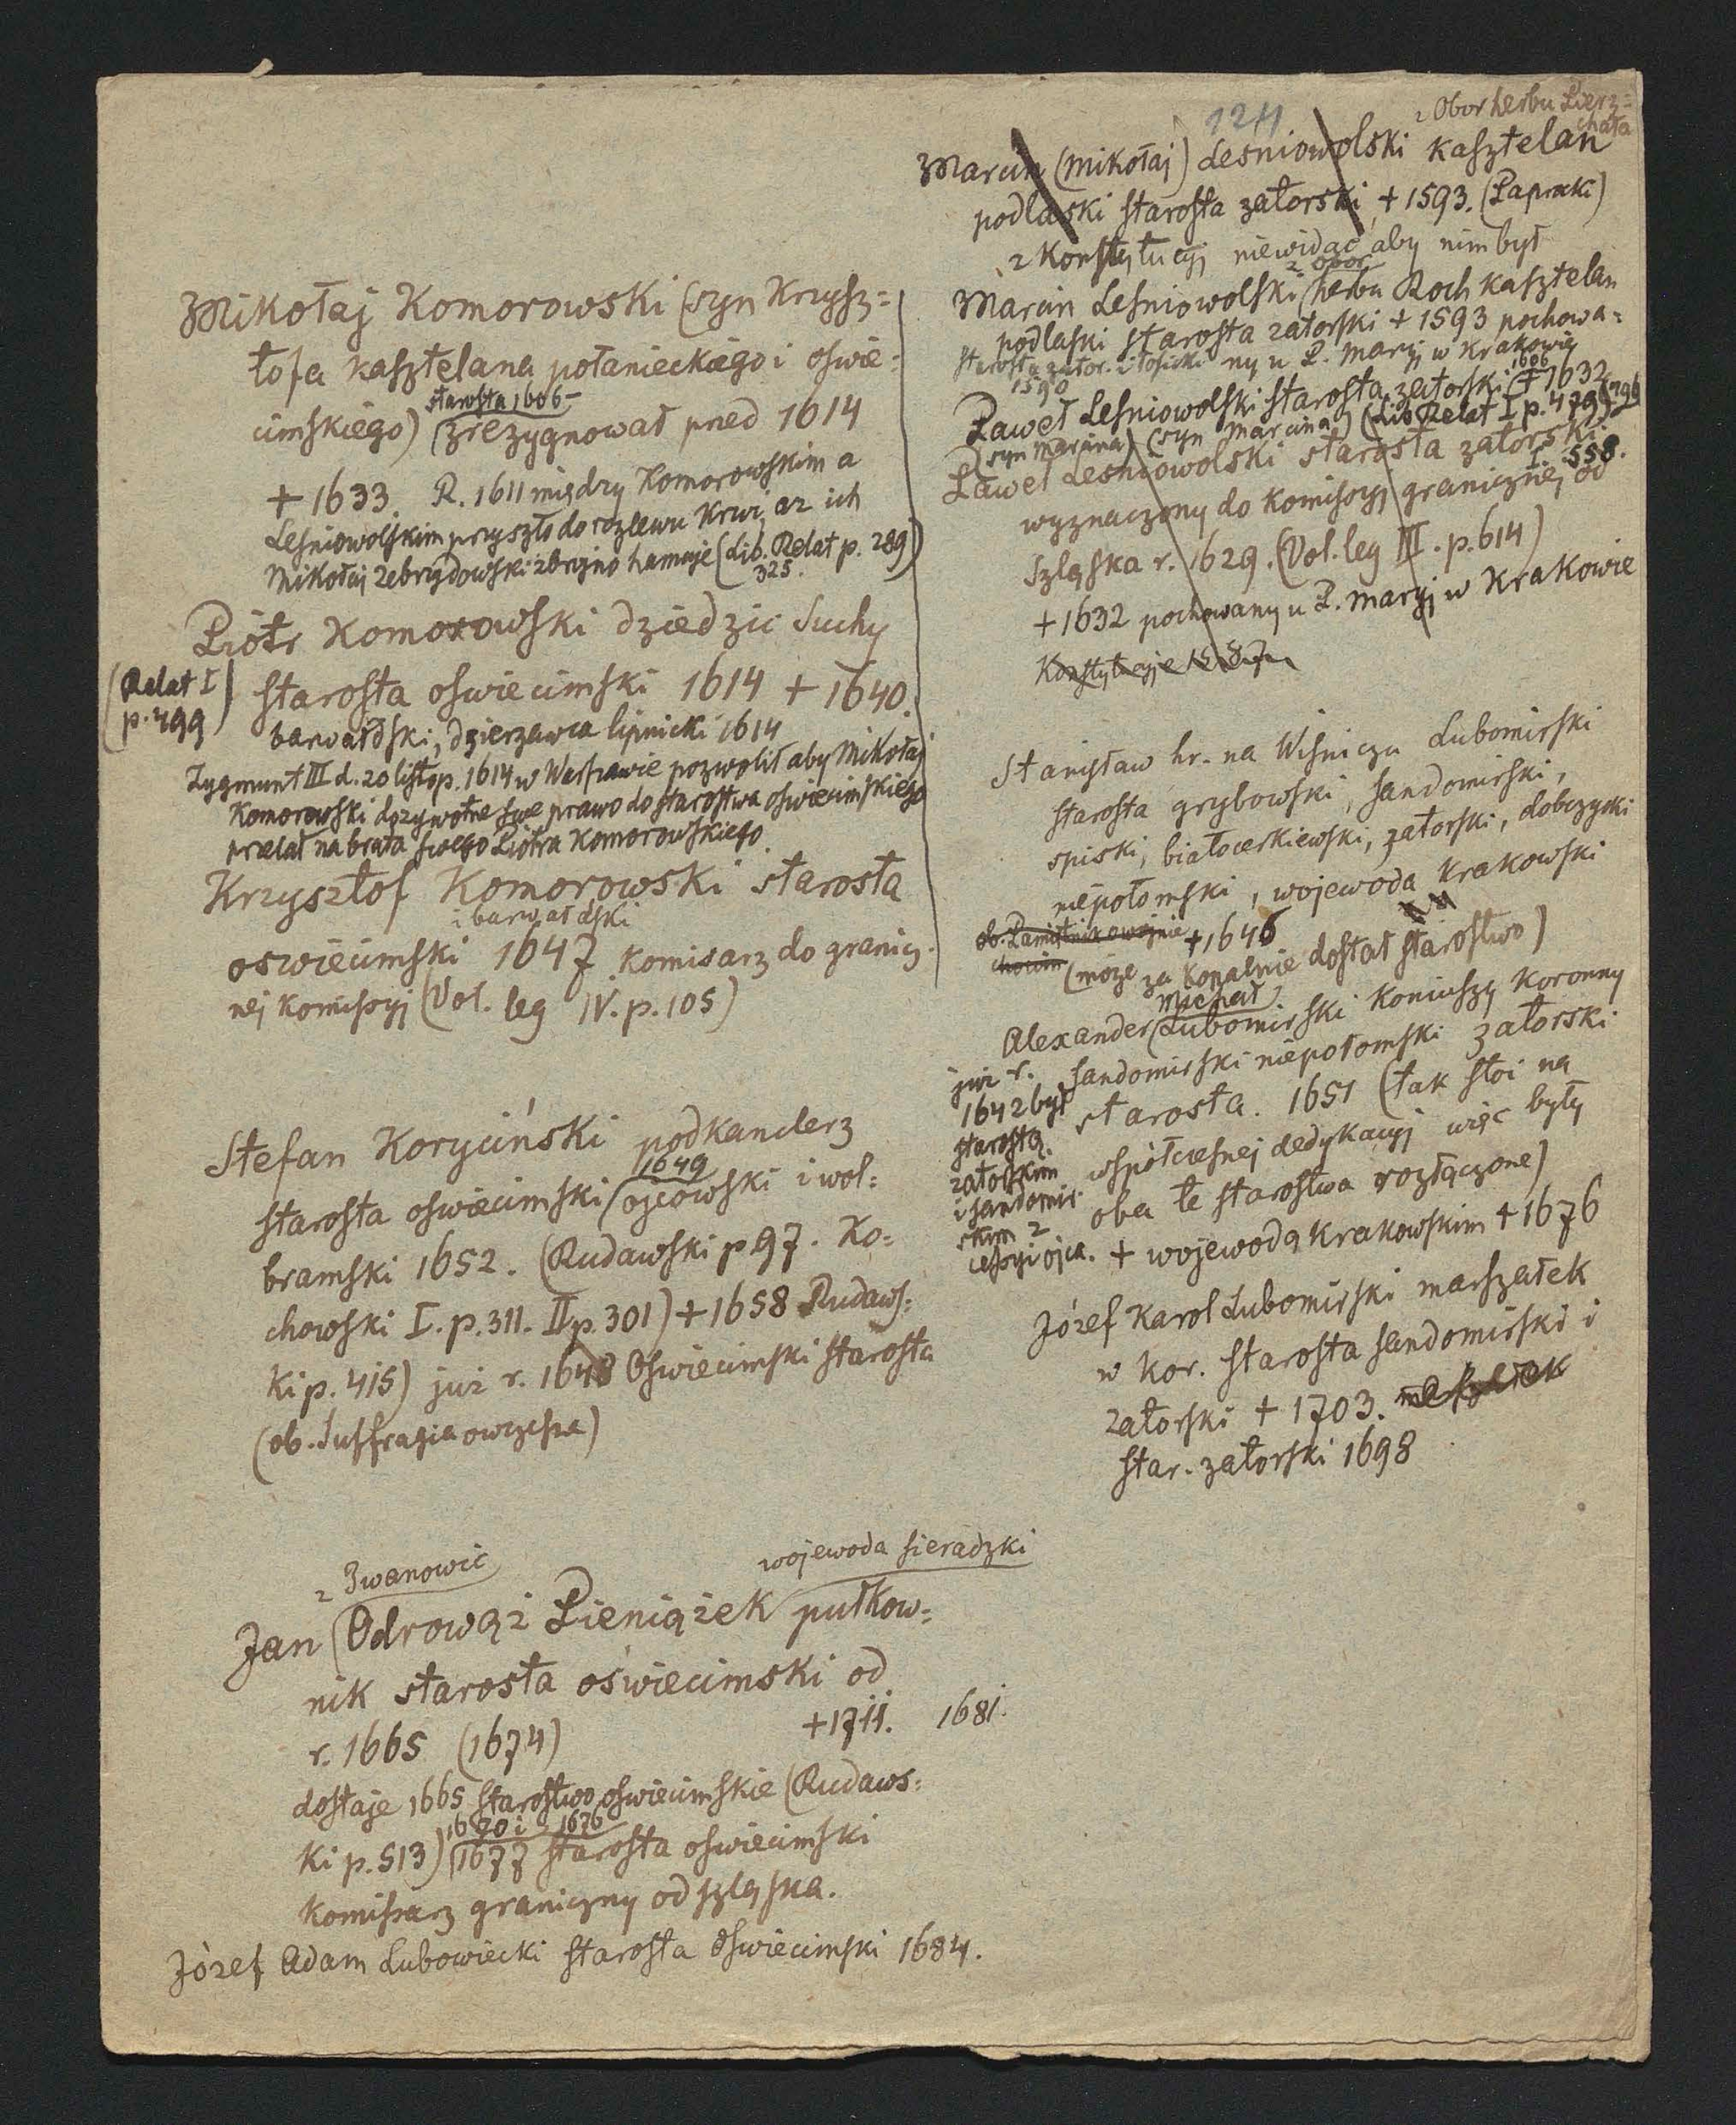 124
Mikołaj Komorowski (syn Krzysz=
tofa kasztelana połanieckiego i oswie=
cimskiego) zrezygnował pned 1614
starosta 1606
+ 1633. R. 1611 między Komorowskim a
Lesniowolskim przyszło do rozlewu krwi, aż ich
Mikołaj Zebrzydowski zbrojno hamuje (Lib. Relat p. 289)
325.
Piotr Komorowski dziedzic Suchy
(Relat I
p. 499)
starosta oswiecimski 1614 + 1640.
barwałdski, dzierzawca lipnicki 1614
Zygmunt III d. 20 listop. 1614 w Warszawie pozwolił aby Mikołaj
Komorowski dozywotne swe prawo do starostwa oswiecimskiego
przelał na brata swego Piotra Komorowskiego.
Krzysztof Komorowski starosta
i barwałdski
oswiecimski 1647 komisarz do granicz=
nej komissyj (Vol. leg IV. p. 105)
Stefan Koryciński podkanclerz
1649
starosta oswiecimski ojcowski i wol=
bramski 1652. (Rudawski p 97. Ko=
chowski I. p. 311. II p. 301) + 1658 Rudaws=
ki p. 415) już r. 1648 Oswiecimski starosta
(ob. Suffragia owczesna)
z Iwanowic
wojewoda sieradzki
Jan Odrowąż Pieniążek pułkow=
nik starosta oświecimski od
r. 1665 (1674) +1711. 1681.
dostaje 1665 starostwo oswiecimskie (Rudaws=
1670 i 1676
ki p. 513) 1677 starosta oswiecimski
komissarz graniczny od szląska.
Józef Adam Lubowiecki starosta Oswiecimski 1684.
z Obor herbu Pierz=
chała
Marcin (Mikołaj) Lesniowolski kasztelan
podlaski starosta zatorski + 1593. (Paprocki)
z Konstytucyj niewidać aby nim był
z Obor
Marcin Lesniowolski herbu Roch kasztelan
podlaski starosta zatorski + 1593 pochowa=
starosta zator. i łosicki ny u P. Maryj w Krakowie
1590
1606
Paweł Lesniowolski starosta zatorski + 1632
(syn Marcina) (syn Marcina) (Lib Relat I p. 479) 496
I. 558.
Paweł Lesniowolski starosta zatorski
wyznaczony do komissyj granicznej od
Szląska r. 1629. (Vol. leg III. p. 614)
+ 1632 pochowany u P. Maryj w Krakowie
Konstytucyje 1587
Stanisław hr. na Wisniczu Lubomirski
starosta grybowski, sandomirski,
spiski, białocerkiewski, zatorski, dobczycki
niepołomski, wojewoda krakowski
ob. Pamiętnik o wojnie
chocim
+1646
(może za Kopalnie dostał starostwo)
Michał
Alexander Lubomirski koniuszy koronny
sandomirski niepołomski zatorski
starosta. 1651 (tak stoi na
współczesnej dedykacyj więc były
oba te starostwa rozłączone)
+ wojewodą krakowskim + 1676
już r.
1642 był
starostą
zatorskim
i sandomir=
skim z
cessyi ojca.
Józef Karol Lubomirski marszałek
w kor. starosta sandomirski i
zatorski + 1703.
star. zatorski 1698